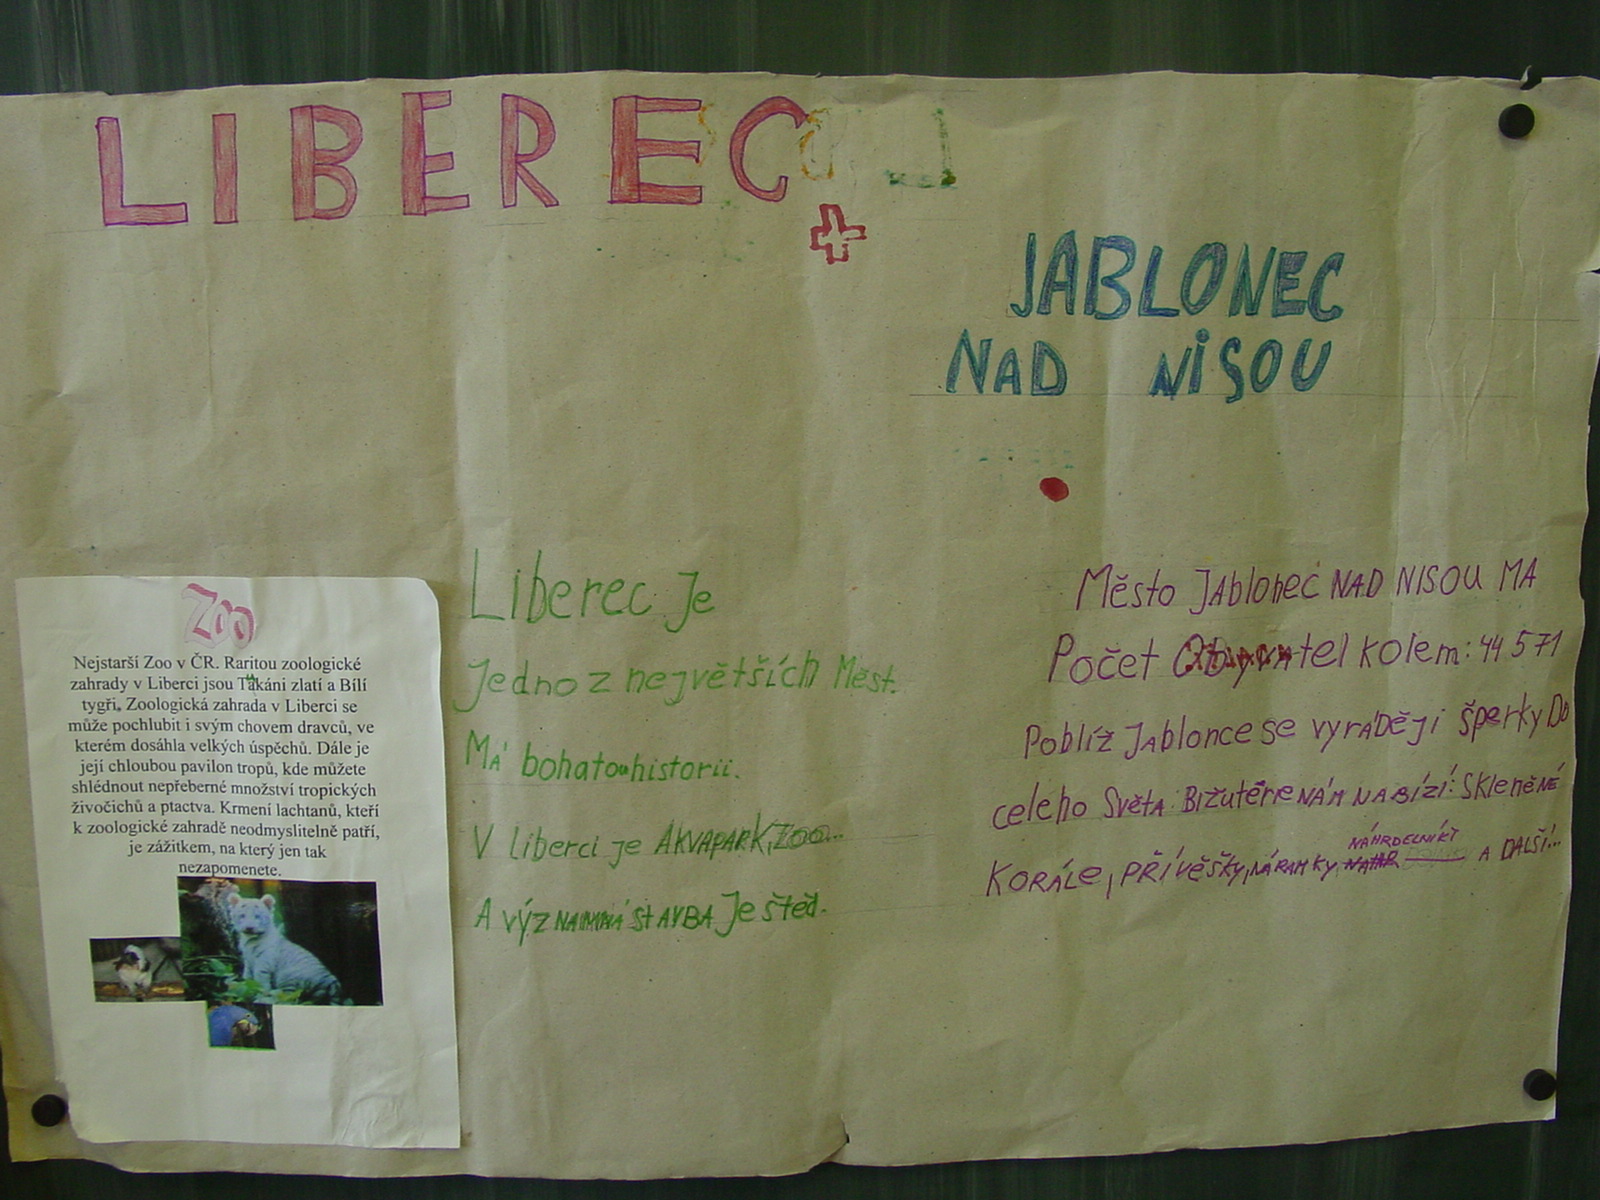 LIBEREC
+
JABLONEC
NAD NISOU
Zoo
Nejstarší Zoo v ČR. Raritou zoologické
zahrady v Liberci jsou Takáni zlatí a Bílí
tygři. Zoologická zahrada v Liberci se
může pochlubit i svým chovem dravců, ve
kterém dosáhla velkých úspěchů. Dále je
její chloubou pavilon tropů, kde můžete
shlédnout nepřeberné množství tropických
živočichů a ptactva. Krmení lachtanů, kteří
k zoologické zahradě neodmyslitelně patří,
je zážitkem, na který jen tak
nezapomenete.
Liberec je
Jedno z největších Měst.
Má bohatou historii.
V liberci je AKVAPARK, ZOO...
A význAmná stAvBA je štěd.
Město JAblonec NAD NISOU MA
Počet Obyvatel kolem: 44 571
Poblíž JAblonce se vyráDěji šperky Do
celeho Světa. Bižutérie NÁM NABÍZÍ: Skleněné
KORÁLE, PŘÍVĚŠKY, NÁRAMKY, NÁHRDELNÍKY A DALŠÍ...